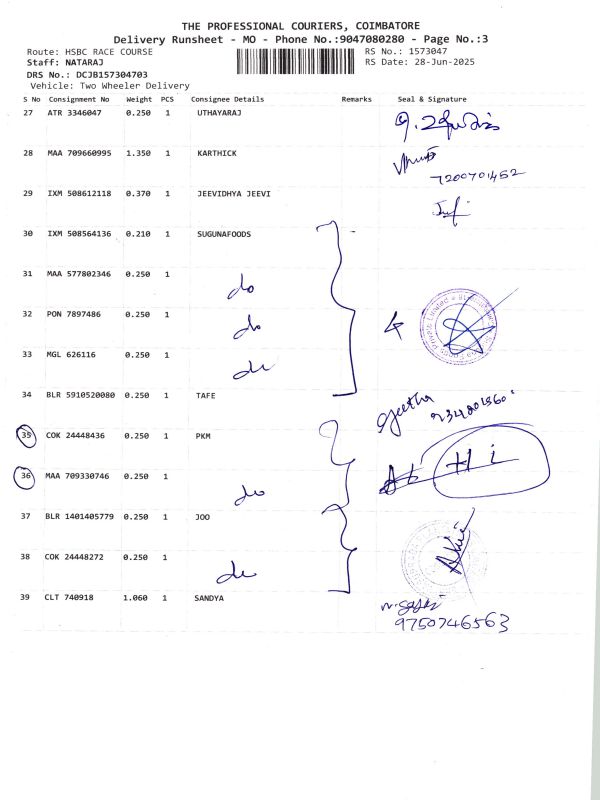 THE PROFESSIONAL COURIERS, COIMBATORE
Delivery Runsheet - MO - Phone No.:9047080280 - Page No.:3
Route: HSBC RACE COURSE RS No.: 1573047
Staff: NATARAJ RS Date: 28-Jun-2025
DRS No.: DCJB157304703
Vehicle: Two Wheeler Delivery
S No Consignment No Weight PCS Consignee Details Remarks Seal & Signature
27 ATR 3346047 0.250 1 UTHAYARAJ
28 MAA 709660995 1.350 1 KARTHICK
7200701452
29 IXM 508612118 0.370 1 JEEVIDHYA JEEVI
30 IXM 508564136 0.210 1 SUGUNAFOODS
31 MAA 577802346 0.250 1 do
32 PON 7897486 0.250 1 do
33 MGL 626116 0.250 1 do
34 BLR 5910520080 0.250 1 TAFE Geetha
35 COK 24448436 0.250 1 PKM Hi
36 MAA 709330746 0.250 1 do
37 BLR 1401405779 0.250 1 JOO
38 COK 24448272 0.250 1 do
39 CLT 740918 1.060 1 SANDYA
9750746563